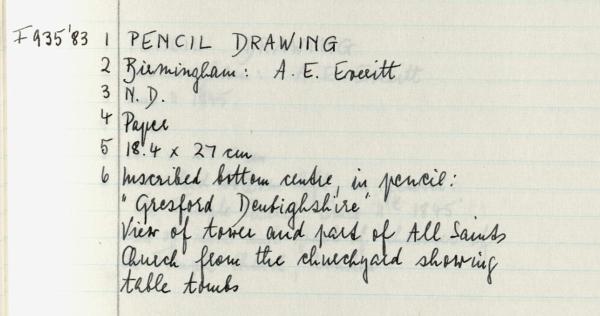 F935'83 1 PENCIL DRAWING
2 Birmingham: A. E. Everitt
3 N. D.
4 Paper
5 18.4 x 27 cm
6 Inscribed bottom centre, in pencil:
"Gresford Denbighshire"
View of tower and part of All Saints
Church from the churchyard showing
table tombs